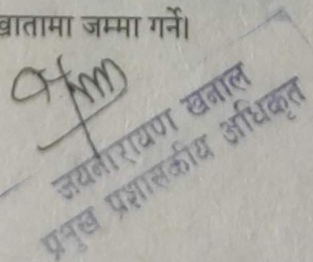 खातामा जम्मा गर्ने।
जयनारायण खनाल
प्रमुख प्रशासकीय अधिकृत